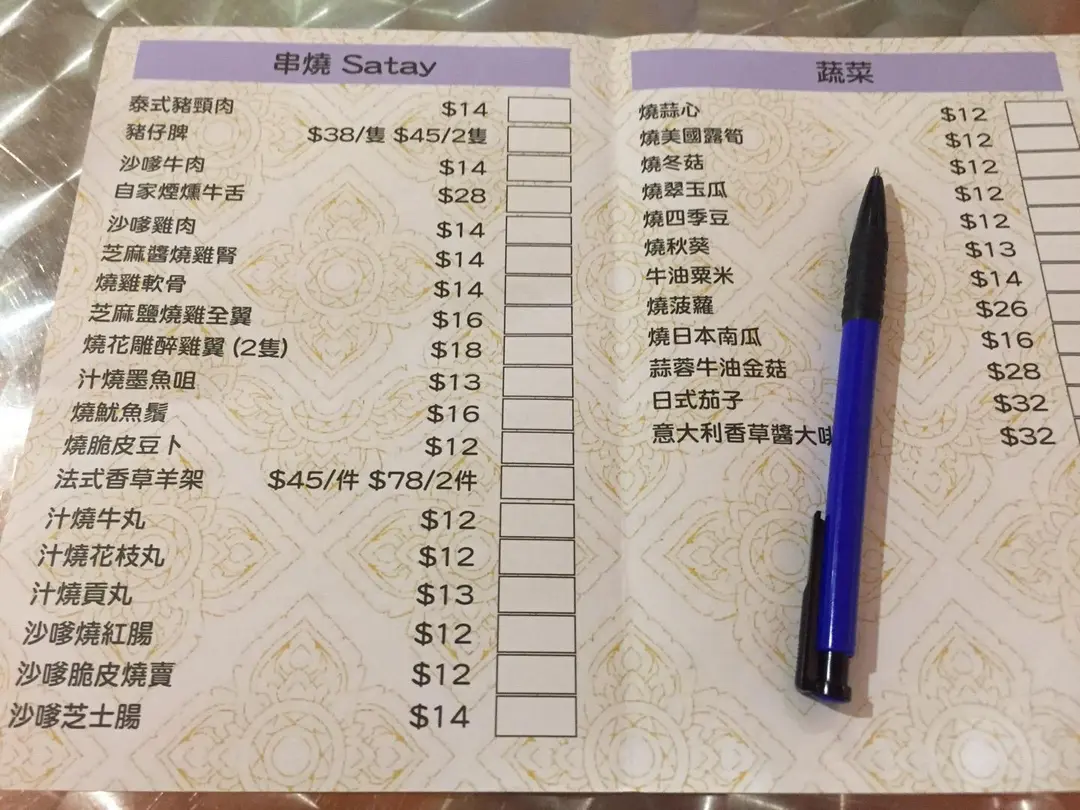 串燒 Satay
泰式豬頸肉 $14
豬仔脾 $38/隻 $45/2隻
沙嗲牛肉 $14
自家煙燻牛舌 $28
沙嗲雞肉 $14
芝麻醬燒雞腎 $14
燒雞軟骨 $14
芝麻鹽燒雞全翼 $16
燒花雕醉雞翼 (2隻) $18
汁燒墨魚咀 $13
燒魷魚鬚 $16
燒脆皮豆卜 $12
法式香草羊架 $45/件 $78/2件
汁燒牛丸 $12
汁燒花枝丸 $12
汁燒貢丸 $13
沙嗲燒紅腸 $12
沙嗲脆皮燒賣 $12
沙嗲芝士腸 $14
蔬菜
燒蒜心 $12
燒美國露筍 $12
燒冬菇 $12
燒翠玉瓜 $12
燒四季豆 $12
燒秋葵 $13
牛油粟米 $14
燒菠蘿 $26
燒日本南瓜 $16
蒜蓉牛油金菇 $28
日式茄子 $32
意大利香草醬大 $32